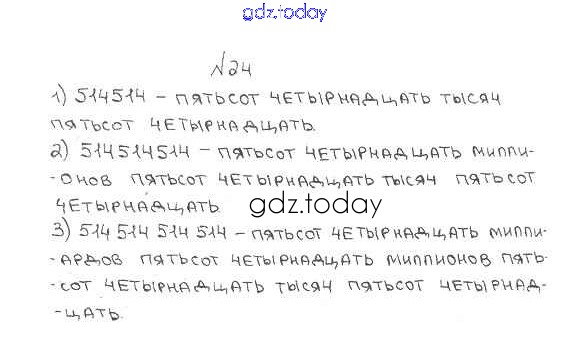 gdz.today
№24
1) 514514 – ПЯТЬСОТ ЧЕТЫРНАДЦАТЬ ТЫСЯЧ
ПЯТЬСОТ ЧЕТЫРНАДЦАТЬ.
2) 514514514 – ПЯТЬСОТ ЧЕТЫРНАДЦАТЬ МИЛЛИ-
-ОНОВ ПЯТЬСОТ ЧЕТЫРНАДЦАТЬ ТЫСЯЧ ПЯТЬСОТ
ЧЕТЫРНАДЦАТЬ.
gdz.today
3) 514 514 514 514 – ПЯТЬСОТ ЧЕТЫРНАДЦАТЬ МИЛЛИ-
-АРДОВ ПЯТЬСОТ ЧЕТЫРНАДЦАТЬ МИЛЛИОНОВ ПЯТЬ-
-СОТ ЧЕТЫРНАДЦАТЬ ТЫСЯЧ ПЯТЬСОТ ЧЕТЫРНАД-
-ЦАТЬ.